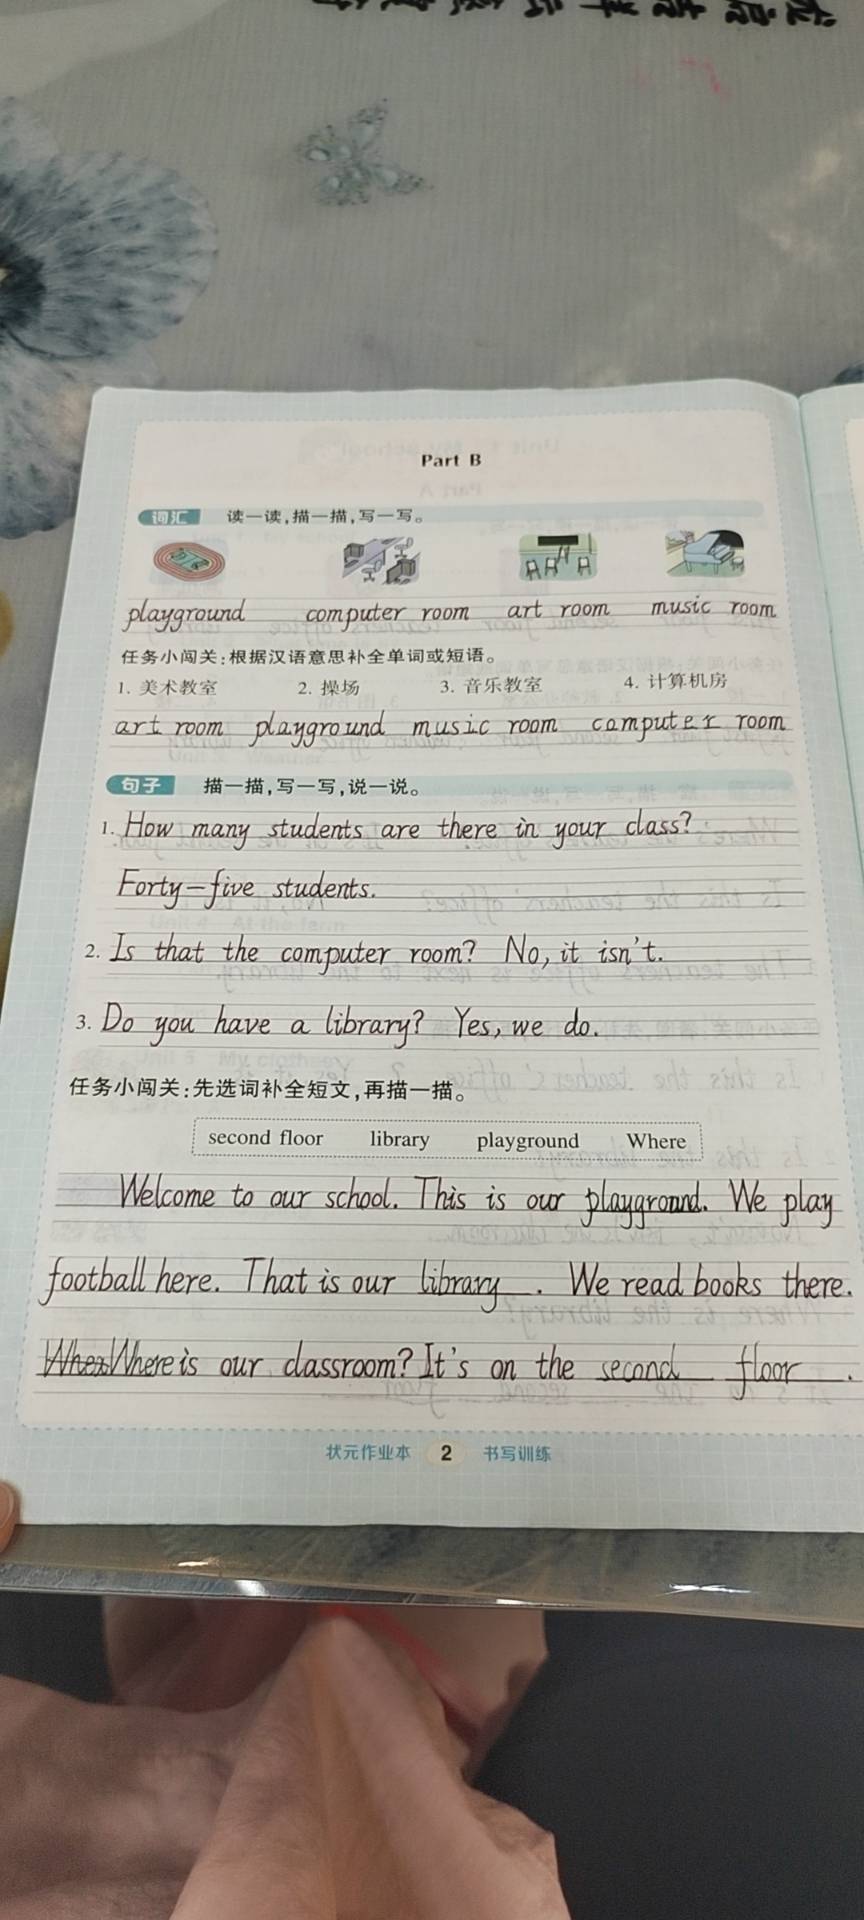 Part B
词汇 读一读,描一描,写一写。
playground computer room art room music room
任务小闯关:根据汉语意思补全单词或短语。
1. 美术教室 2. 操场 3. 音乐教室 4. 计算机房
art room playground music room computer room
句子 描一描,写一写,说一说。
1. How many students are there in your class?
Forty-five students.
2. Is that the computer room? No, it isn't.
3. Do you have a library? Yes, we do.
任务小闯关:先选词补全短文,再描一描。
second floor library playground Where
Welcome to our school. This is our playground. We play
football here. That is our library. We read books there.
Where is our classroom? It's on the second floor.
状元作业本 2 书写训练